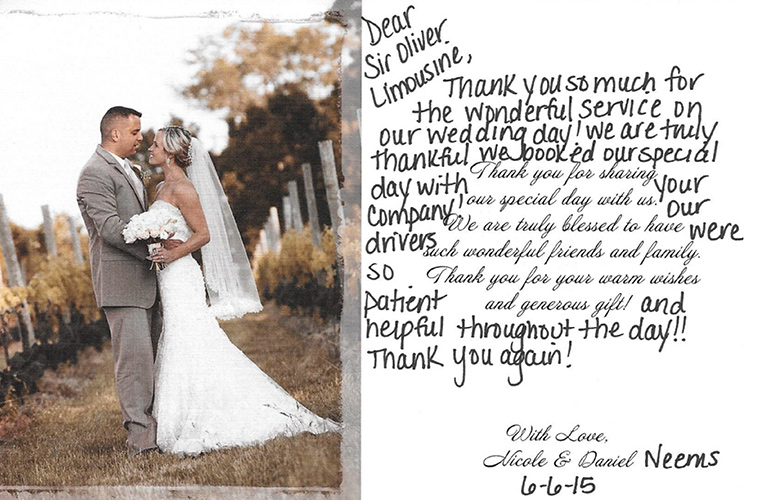 Dear
Sir Oliver
Limousine,
Thank you so much for
the wonderful service on
our wedding day! We are truly
thankful we booked our special
day with your
company! Our
drivers were
so
patient and
helpful throughout the day!!
Thank you again!
Thank you for sharing
our special day with us.
We are truly blessed to have
such wonderful friends and family.
Thank you for your warm wishes
and generous gift!
With Love,
Nicole & Daniel Neems
6-6-15